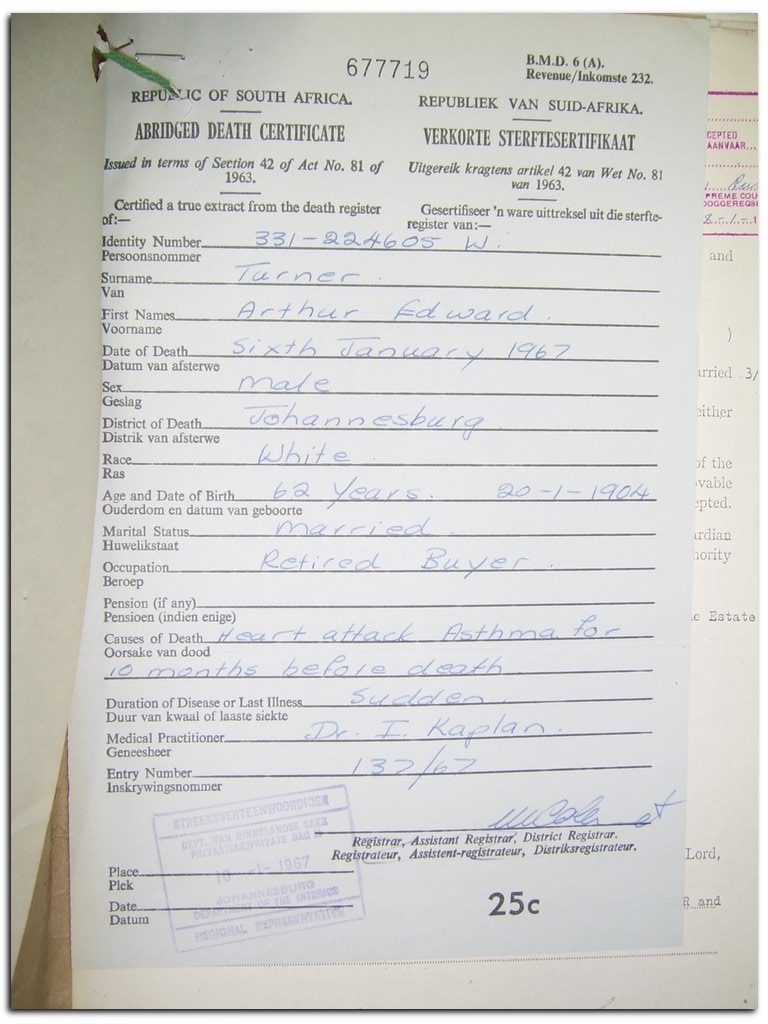 677719
B.M.D. 6 (A).
Revenue/Inkomste 232.
REPUBLIC OF SOUTH AFRICA.
REPUBLIEK VAN SUID-AFRIKA.
ABRIDGED DEATH CERTIFICATE
VERKORTE STERFTESERTIFIKAAT
Issued in terms of Section 42 of Act No. 81 of
1963.
Uitgereik kragtens artikel 42 van Wet No. 81
van 1963.
Certified a true extract from the death register
of:—
Gesertifiseer 'n ware uittreksel uit die sterfte-
register van:—
Identity Number 331-224605 W.
Persoonsnommer
Surname Turner.
Van
First Names Arthur Edward.
Voorname
Date of Death Sixth January 1967
Datum van afsterwe
Sex male
Geslag
District of Death Johannesburg
Distrik van afsterwe
Race White.
Ras
Age and Date of Birth 62 Years. 20-1-1904
Ouderdom en datum van geboorte
Marital Status married.
Huwelikstaat
Occupation Retired Buyer.
Beroep
Pension (if any)
Pensioen (indien enige)
Causes of Death Heart attack Asthma for
Oorsake van dood
10 months before death.
Duration of Disease or Last Illness Sudden.
Duur van kwaal of laaste siekte
Medical Practitioner Dr. I. Kaplan.
Geneesheer
Entry Number 137/67
Inskrywingsnommer
Registrar, Assistant Registrar, District Registrar.
Registrateur, Assistent-registrateur, Distriksregistrateur.
STREEKSVERTEENWOORDIGER
DEPT. VAN BINNELANDSE SAKE
PRIVAATSAK/PRIVATE BAG
10 -1- 1967
JOHANNESBURG
DEPARTMENT OF THE INTERIOR
REGIONAL REPRESENTATIVE
Place
Plek
Date
Datum
25c
CEPTED
AANVAAR
PREME COU
OOGGEREGS
8.-1.-1
and
)
arried 3/
either
of the
ovable
epted.
ardian
hority
e Estate
Lord,
R and